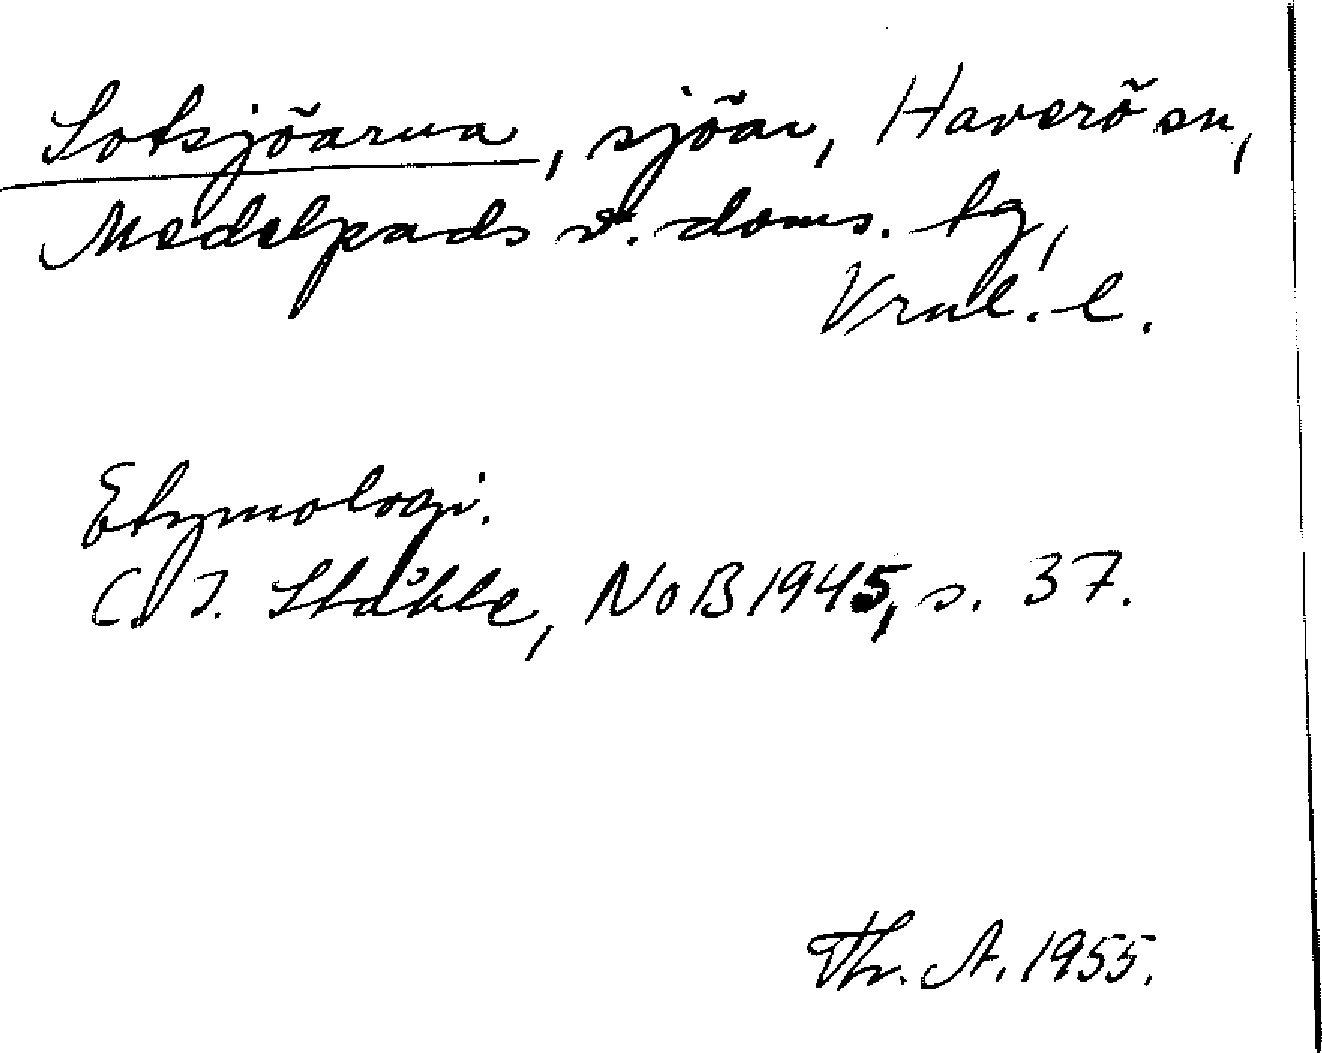 Sotsjöarna, sjöar, Haverö sn,
Medelpads v. doms. tg,
Vrnl. l.
Etymologi.
C. I. Ståhle, NoB 1945, s. 37.
Th. A. 1955.